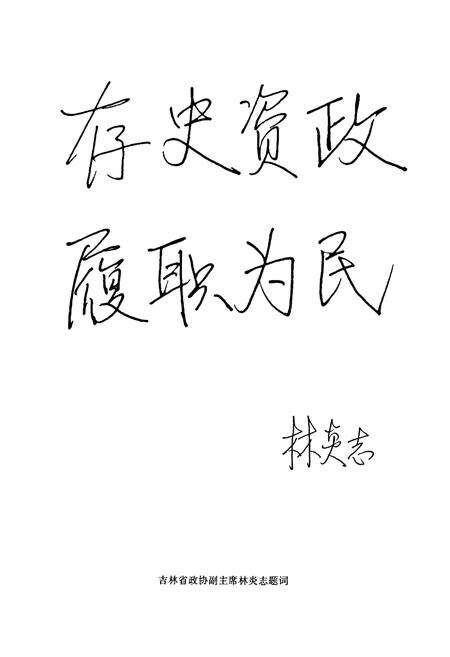 存史资政
履职为民
林炎志
吉林省政协副主席林炎志题词